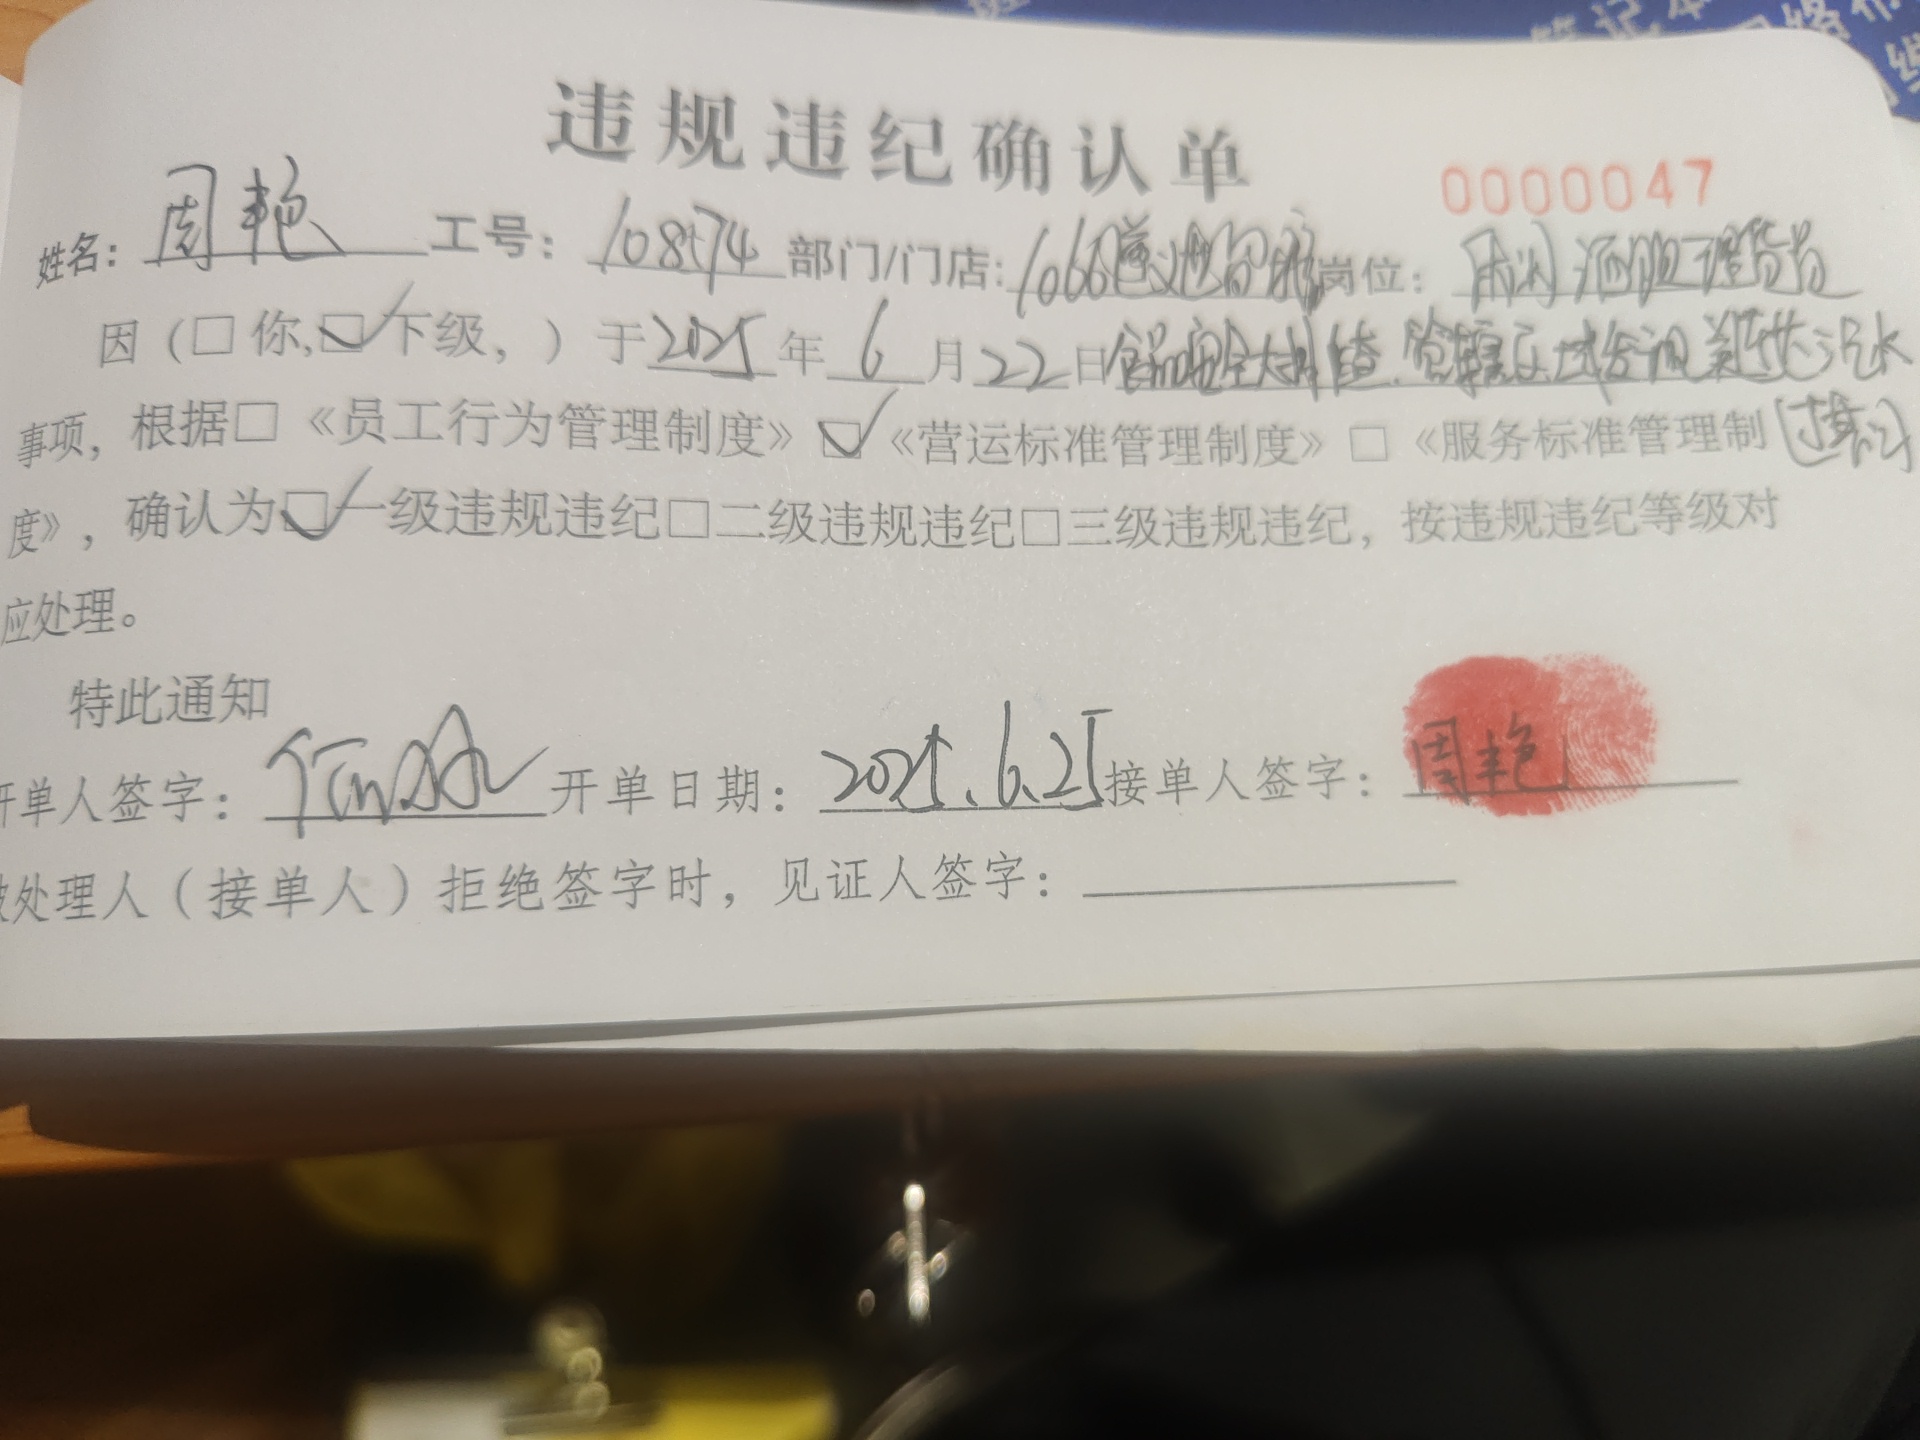 笔记本
违规违纪确认单
0000047
姓名：周艳 工号：108574 部门/门店：1066 岗位：理货员
因（□你，☑下级，）于2025年6月22日食品安全大排查，管辖区域
事项，根据□《员工行为管理制度》☑《营运标准管理制度》□《服务标准管理制
度》，确认为☑一级违规违纪□二级违规违纪□三级违规违纪，按违规违纪等级对
应处理。
特此通知
开单人签字： 开单日期：2025.6.25 接单人签字：周艳
被处理人（接单人）拒绝签字时，见证人签字：